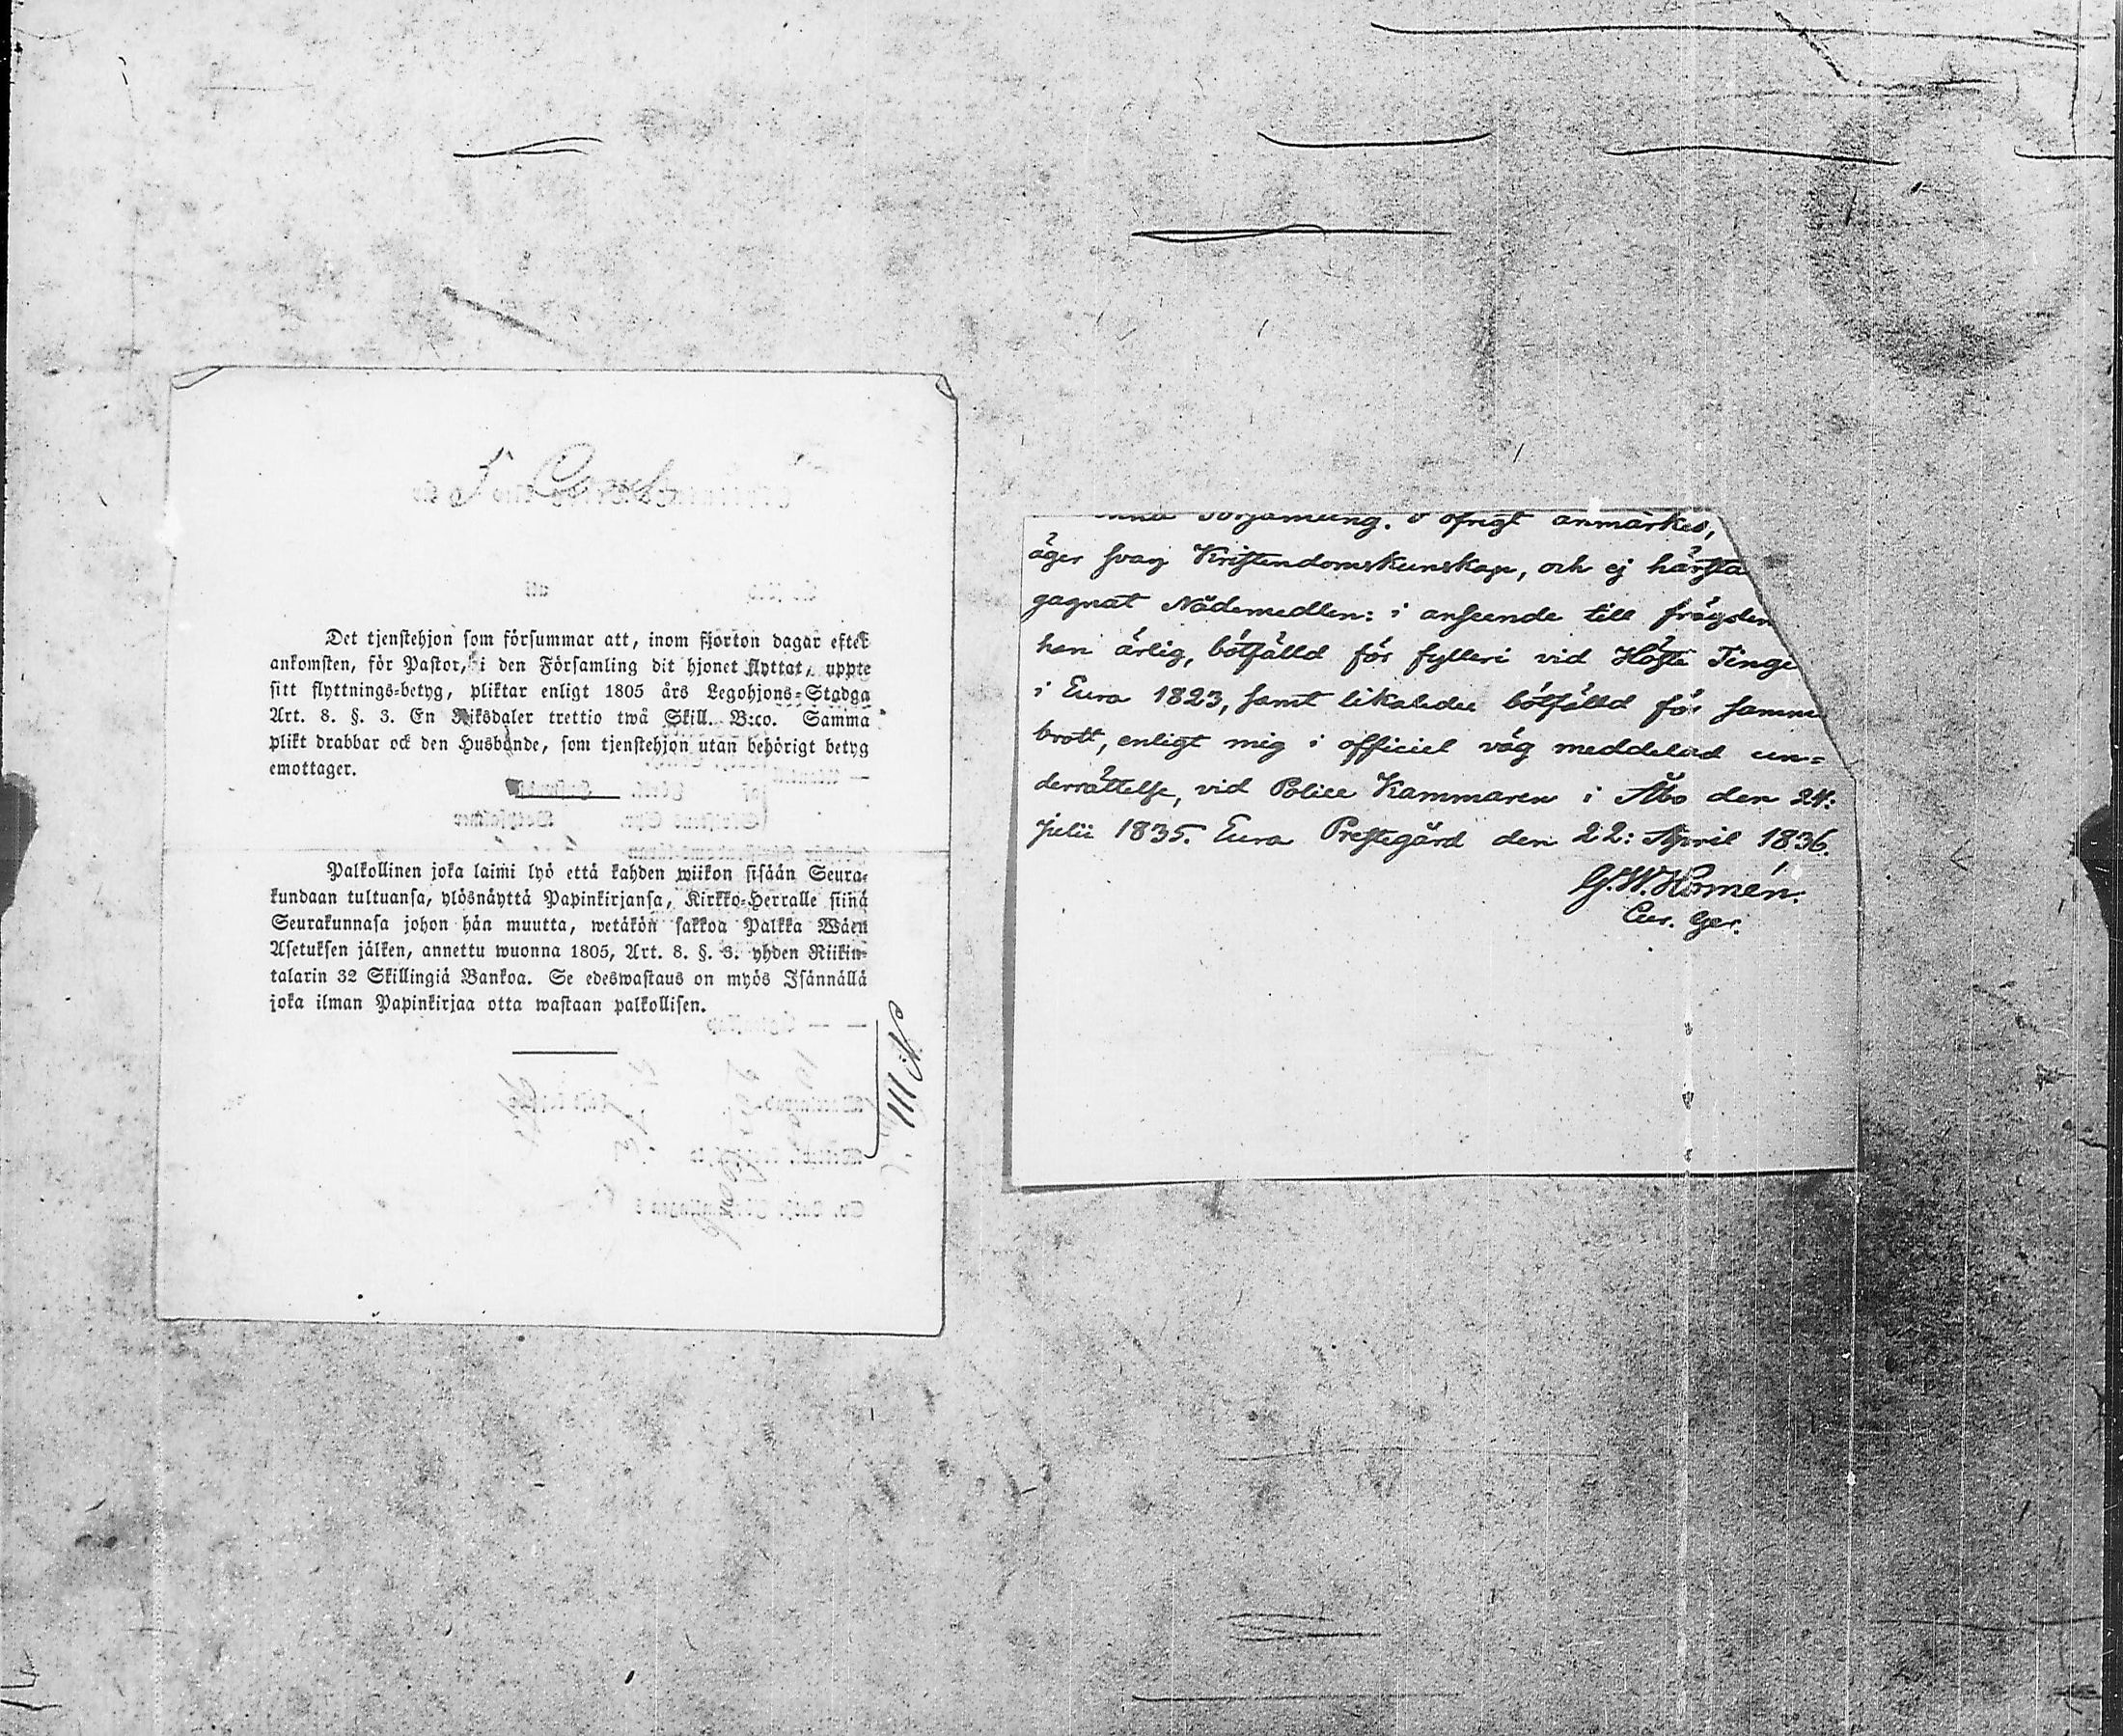 Det tjenstehjon som försummar att, inom fjorton dagar efter
ankomsten, för Pastor, i den Församling dit hjonet flyttat, uppte
sitt flyttnings-betyg, pliktar enligt 1805 års Legohjons-Stadga
Art. 8. §. 3. En Riksdaler trettio twå Skill. B:co. Samma
plikt drabbar ock den Husbonde, som tjenstehjon utan behörigt betyg
emottager.
Palkollinen joka laimi lyö että kahden wiikon sisään Seura-
kundaan tultuansa, ylösnäyttä Papinkirjansa, Kirkko-Herralle siinä
Seurakunnasa johon hän muutta, wetäkön sakkoa Palkka Wäen
Asetuksen jälken, annettu wuonna 1805, Art. 8. §. 3. yhden Riikin-
talarin 32 Skillingiä Bankoa. Se edeswastaus on myös Isännällä
joka ilman Papinkirjaa otta wastaan palkollisen.
Församling. I öfrigt anmärkes,
äger svag Kristendomskunskap, och ej
gagnat Nådemedlen: i anseende till
han ärlig, bötfälld för fylleri vid Höste Tinge
i Eura 1823, samt likaledes bötfälld för samma
brott, enligt mig i officiel väg meddelad un=
derrättelse, vid Police Kammaren i Åbo den 24:
julii 1835. Eura Prestegård den 22: April 1836.
G.W. Homén.